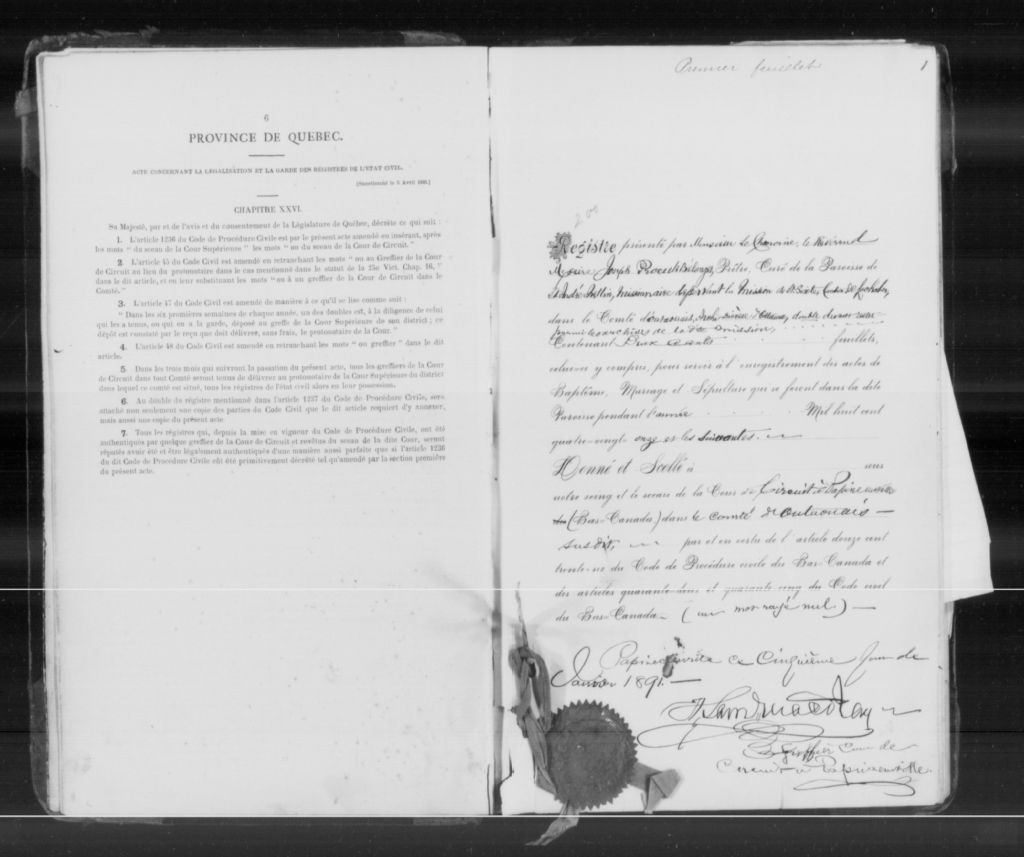 6
PROVINCE DE QUEBEC.
ACTE CONCERNANT LA LEGALISATION ET LA GARDE DES REGISTRES DE L'ETAT CIVIL.
CHAPITRE XXVI.
Sa Majesté, par et de l'avis et du consentement de la Législature de Québec, décrète ce qui suit :
1. L'article 1236 du Code de Procédure Civile est par le présent acte amendé en insérant, après
les mots " du sceau de la Cour Supérieure " les mots " ou du sceau de la Cour de Circuit."
2. L'article 45 du Code Civil est amendé en retranchant les mots " ou au Greffier de la Cour
de Circuit au lieu du protonotaire dans le cas mentionné dans le statut de la 25e Vict. Chap. 16, "
dans le dit article, et en leur substituant les mots " ou à un greffier de la Cour de Circuit dans le
Comté."
3. L'article 47 du Code Civil est amendé de manière à ce qu'il se lise comme suit :
" Dans les six premières semaines de chaque année, un des doubles est, à la diligence de celui
qui les a tenus, ou qui en a la garde, déposé au greffe de la Cour Supérieure de son district ; ce
dépôt est constaté par le reçu que doit délivrer, sans frais, le protonotaire de la Cour."
4. L'article 48 du Code Civil est amendé en retranchant les mots " ou greffier " dans le dit
article.
5. Dans les trois mois qui suivront la passation du présent acte, tous les greffiers de la Cour
de Circuit dans tout Comté seront tenus de délivrer au protonotaire de la Cour Supérieure du district
dans lequel ce comté est situé, tous les régistres de l'état civil alors en leur possession.
6. Au double du régistre mentionné dans l'article 1237 du Code de Procédure Civile, sera
attaché non seulement une copie des parties du Code Civil que le dit article requiert d'y annexer,
mais aussi une copie du présent acte.
7. Tous les régistres qui, depuis la mise en vigueur du Code de Procédure Civile, ont été
authentiqués par quelque greffier de la Cour de Circuit et revêtus du sceau de la dite Cour, seront
réputés avoir été et être légalement authentiqués d'une manière aussi parfaite que si l'article 1236
du dit Code de Procédure Civile eût été primitivement décrété tel qu'amendé par la section première
du présent acte.
Premier feuillet
1
Registre présenté par Monsieur le Chanoine
Joseph Prêtre, Curé de la Paroisse de
missionnaire desservant la mission de
dans le Comté d'Outaouais,
Contenant Deux cents feuillets,
celui-ci y compris, pour servir à l'enregistrement des actes de
Baptême, Mariage et Sépulture qui se feront dans la dite
Paroisse pendant l'année Mil huit cent
quatre-vingt onze et les suivantes.
Donné et Scellé à sous
notre seing et le sceau de la Cour de Circuit à Papineauville
(Bas-Canada) dans le comté d'Outaouais
susdit, par et en vertu de l'article douze cent
trente-six du Code de Procédure civile du Bas-Canada et
des articles quarante-deux et quarante-cinq du Code civil
du Bas-Canada (un mot rayé nul)
Papineauville ce Cinquième jour de
Janvier 1891.
Greffier Cour de
Circuit à Papineauville.